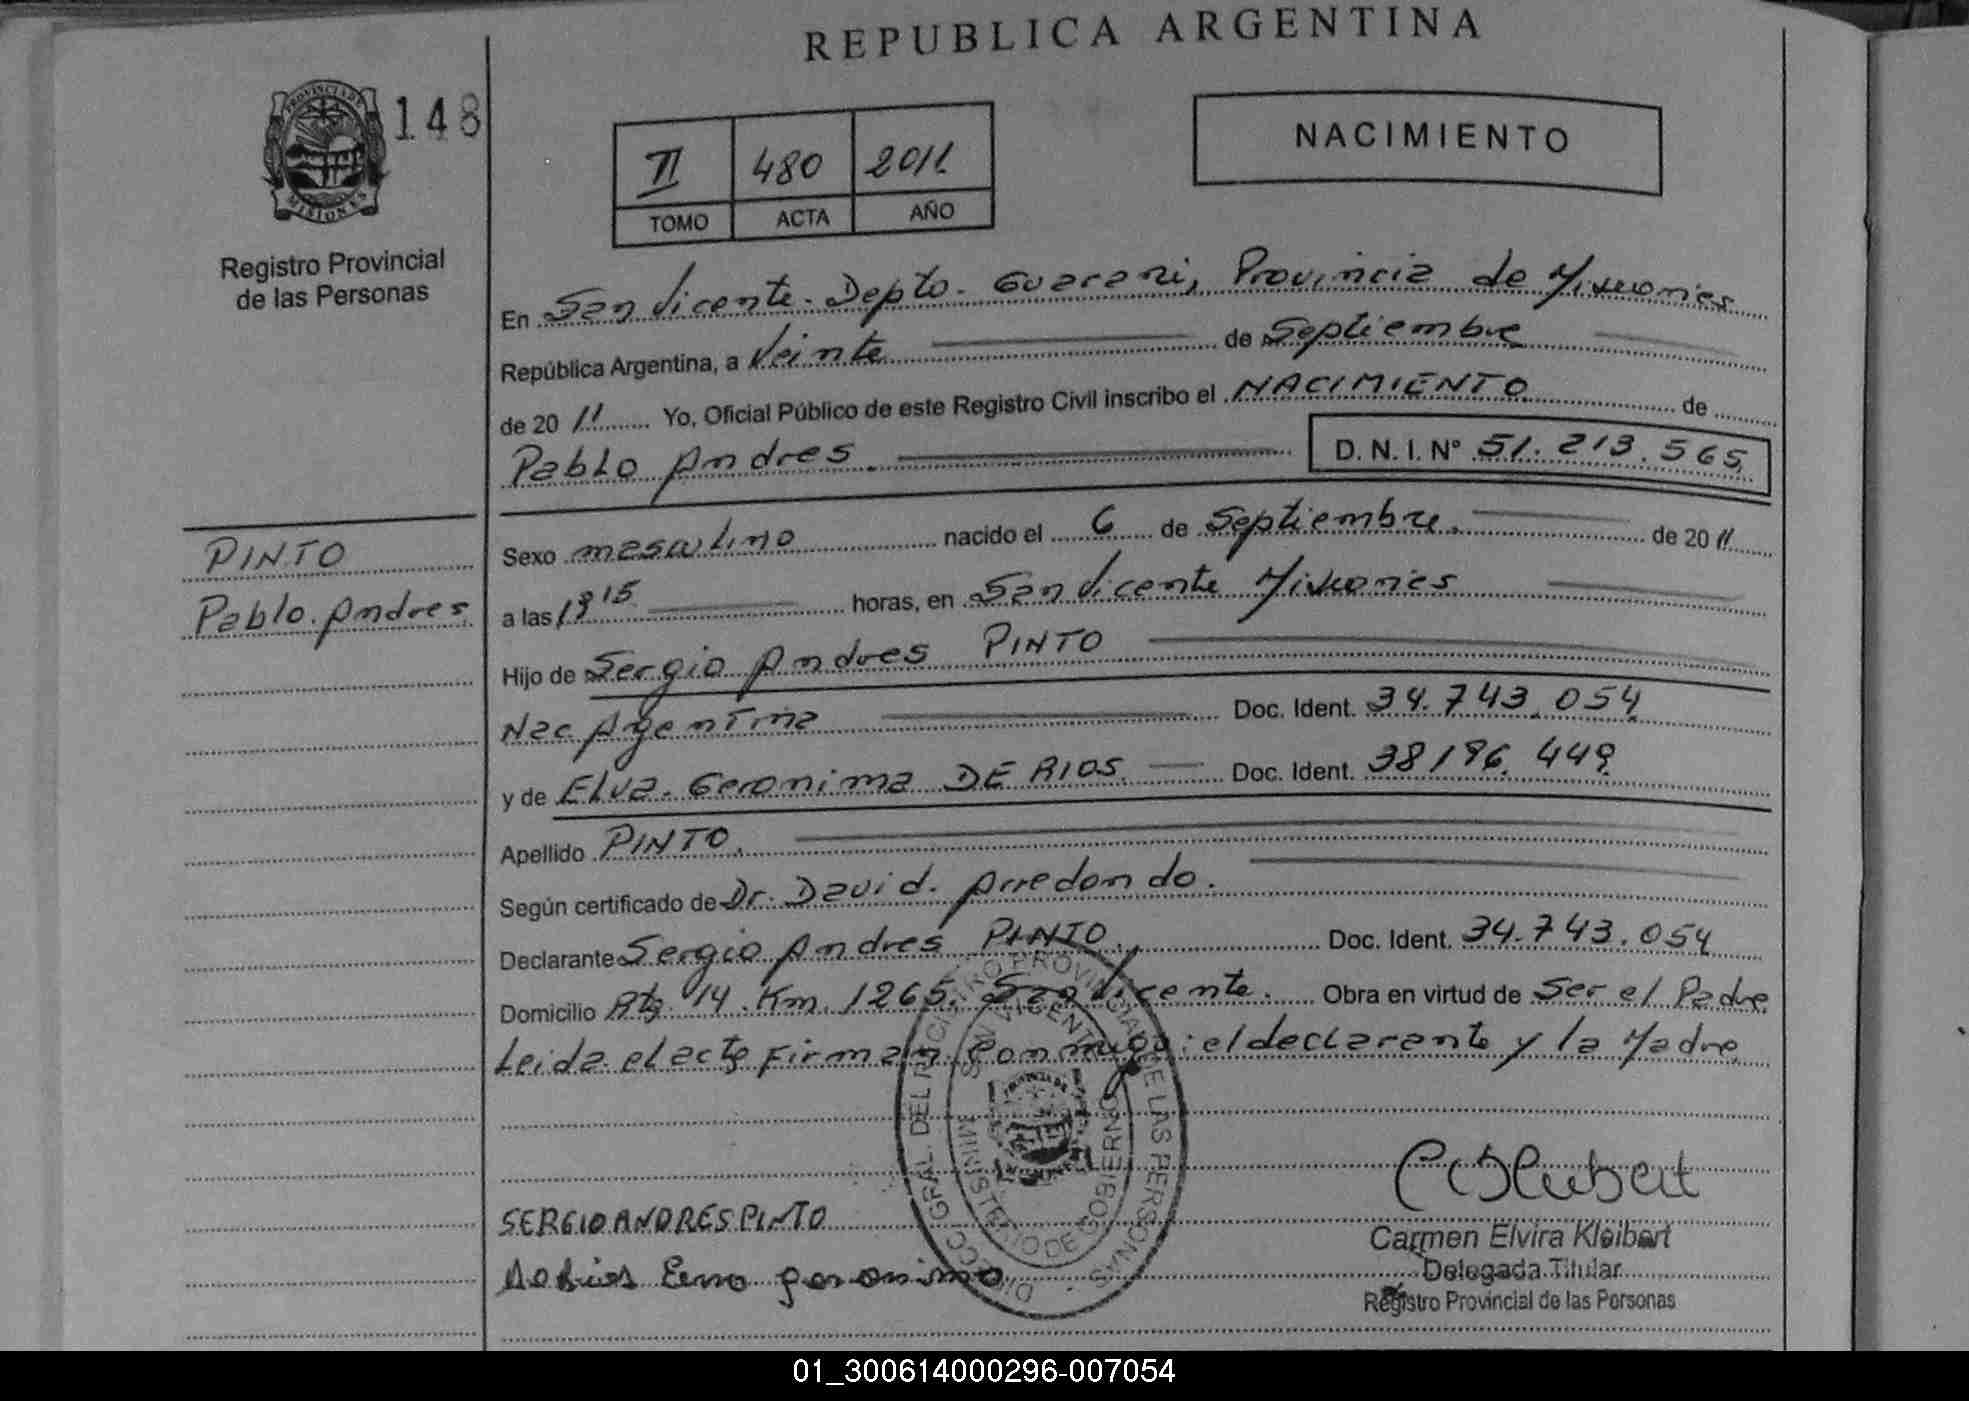 REPUBLICA ARGENTINA
PROVINCIA DE
MISIONES
148
Registro Provincial
de las Personas
II 480 2011
TOMO ACTA AÑO
NACIMIENTO
En San Vicente. Depto. Guarani, Provincia de Misiones
República Argentina, a Veinte de Septiembre
de 20 11 Yo, Oficial Público de este Registro Civil inscribo el NACIMIENTO de
Pablo Andres. D. N. I. N° 51.213.565
PINTO
Pablo Andres
Sexo masculino nacido el 6 de Septiembre. de 20 11
a las 19 15 horas, en San Vicente Misiones
Hijo de Sergio Andres PINTO
Nac Argentina Doc. Ident. 34.743.054
y de Elva Geronima DE RIOS. Doc. Ident. 38196.449
Apellido PINTO.
Según certificado de Dr. David Arredondo.
Declarante Sergio Andres PINTO. Doc. Ident. 34.743.054
Domicilio Rta 14. Km. 1265. San Vicente. Obra en virtud de Ser el Padre
Leida el acta Firman conmigo: el declarante y la Madre
DIRECC. GRAL. DEL REGISTRO PROVINCIAL DE LAS PERSONAS
SAN VICENTE
MINISTERIO DE GOBIERNO
PROVINCIA DE
MISIONES
SERGIO ANDRES PINTO
geronima
Carmen Elvira Kleibert
Delegada Titular
Registro Provincial de las Personas
01_300614000296-007054